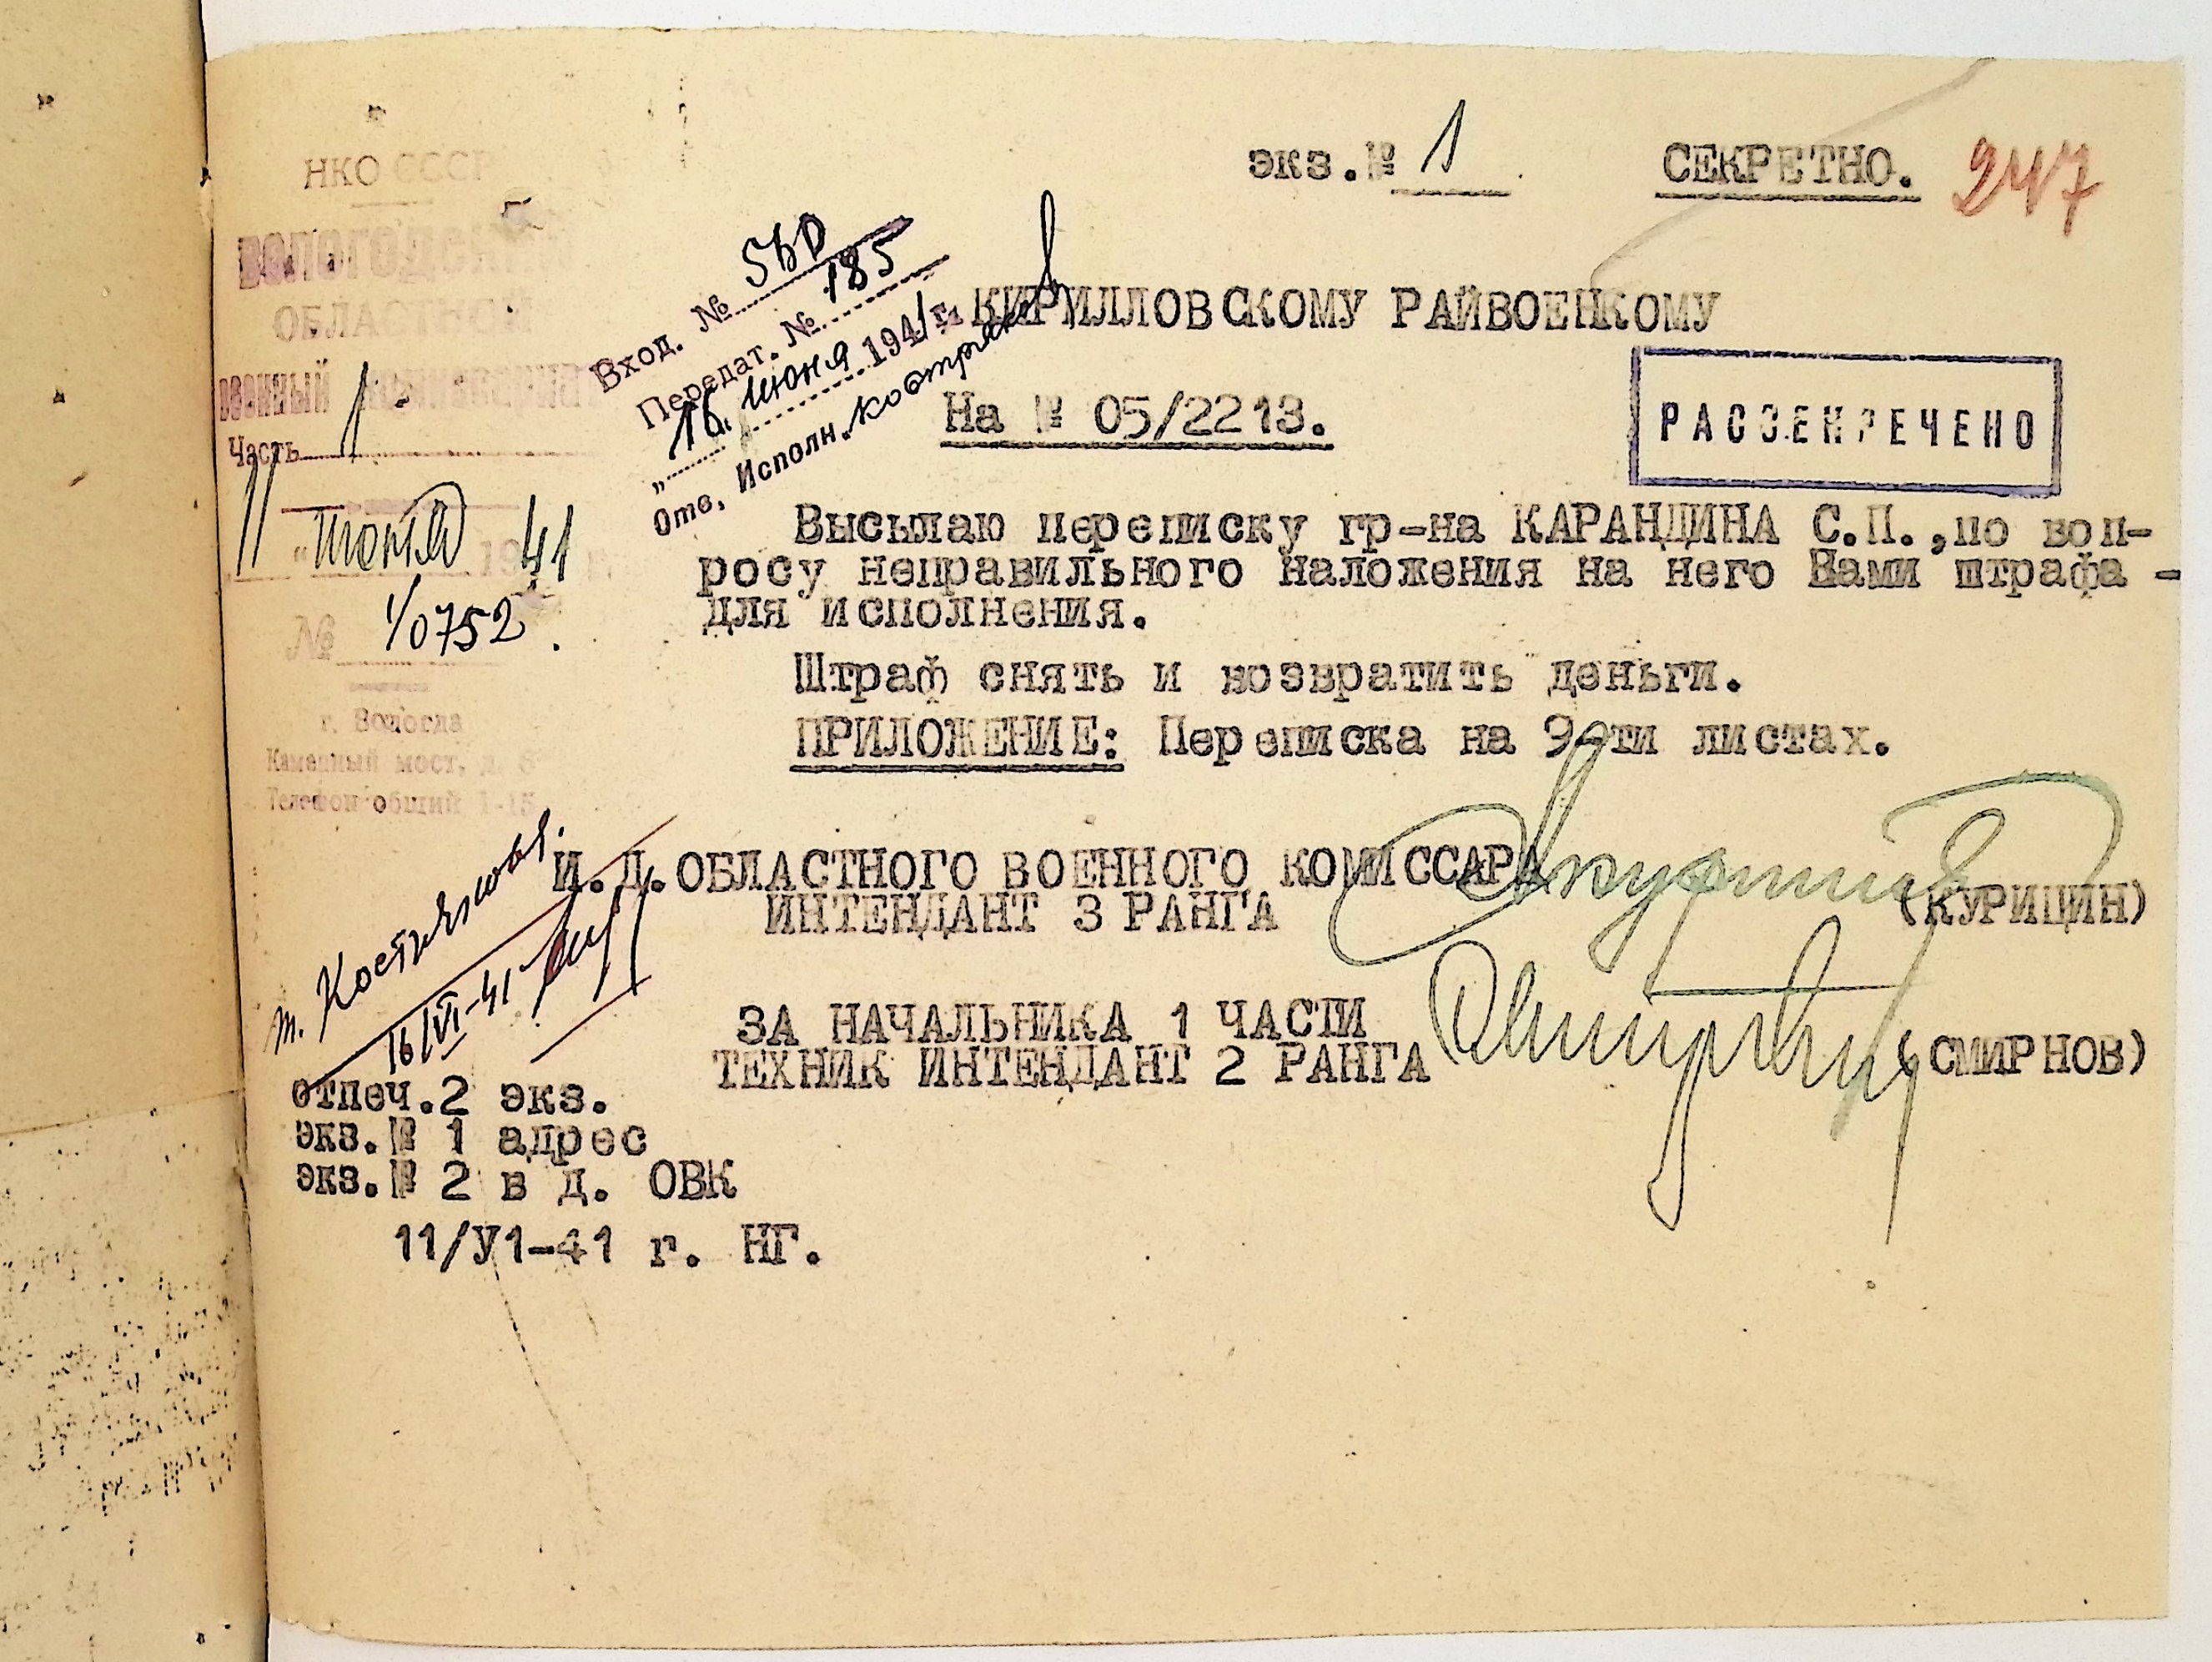 экз.№ 1
СЕКРЕТНО. 247
НКО СССР
ВОЛОГОДСКИЙ
ОБЛАСТНОЙ
ВОЕННЫЙ КОМИССАРИАТ
Часть 1
11 " июня 1941
№ 1/0752.
г. Вологда
Каменный мост, д.
Телефон общий 1-15
Вход. №
Передат. № 185
„16" июня 1941 г.
Отв. Исполн.
КИРИЛЛОВСКОМУ РАЙВОЕНКОМУ
На № 05/2213.
РАССЕКРЕЧЕНО
Высылаю переписку гр-на КАРАНДИНА С.П.,по воп-
росу неправильного наложения на него Вами штрафа -
для исполнения.
Штраф снять и возвратить деньги.
ПРИЛОЖЕНИЕ: Переписка на 9-ти листах.
И.Д.ОБЛАСТНОГО ВОЕННОГО КОМИССАРА
ИНТЕНДАНТ 3 РАНГА (КУРИЦИН)
ЗА НАЧАЛЬНИКА 1 ЧАСТИ
ТЕХНИК ИНТЕНДАНТ 2 РАНГА (СМИРНОВ)
т.
16/VI-41
отпеч.2 экз.
экз.№ 1 адрес
экз.№ 2 в д. ОВК
11/У1-41 г. НГ.